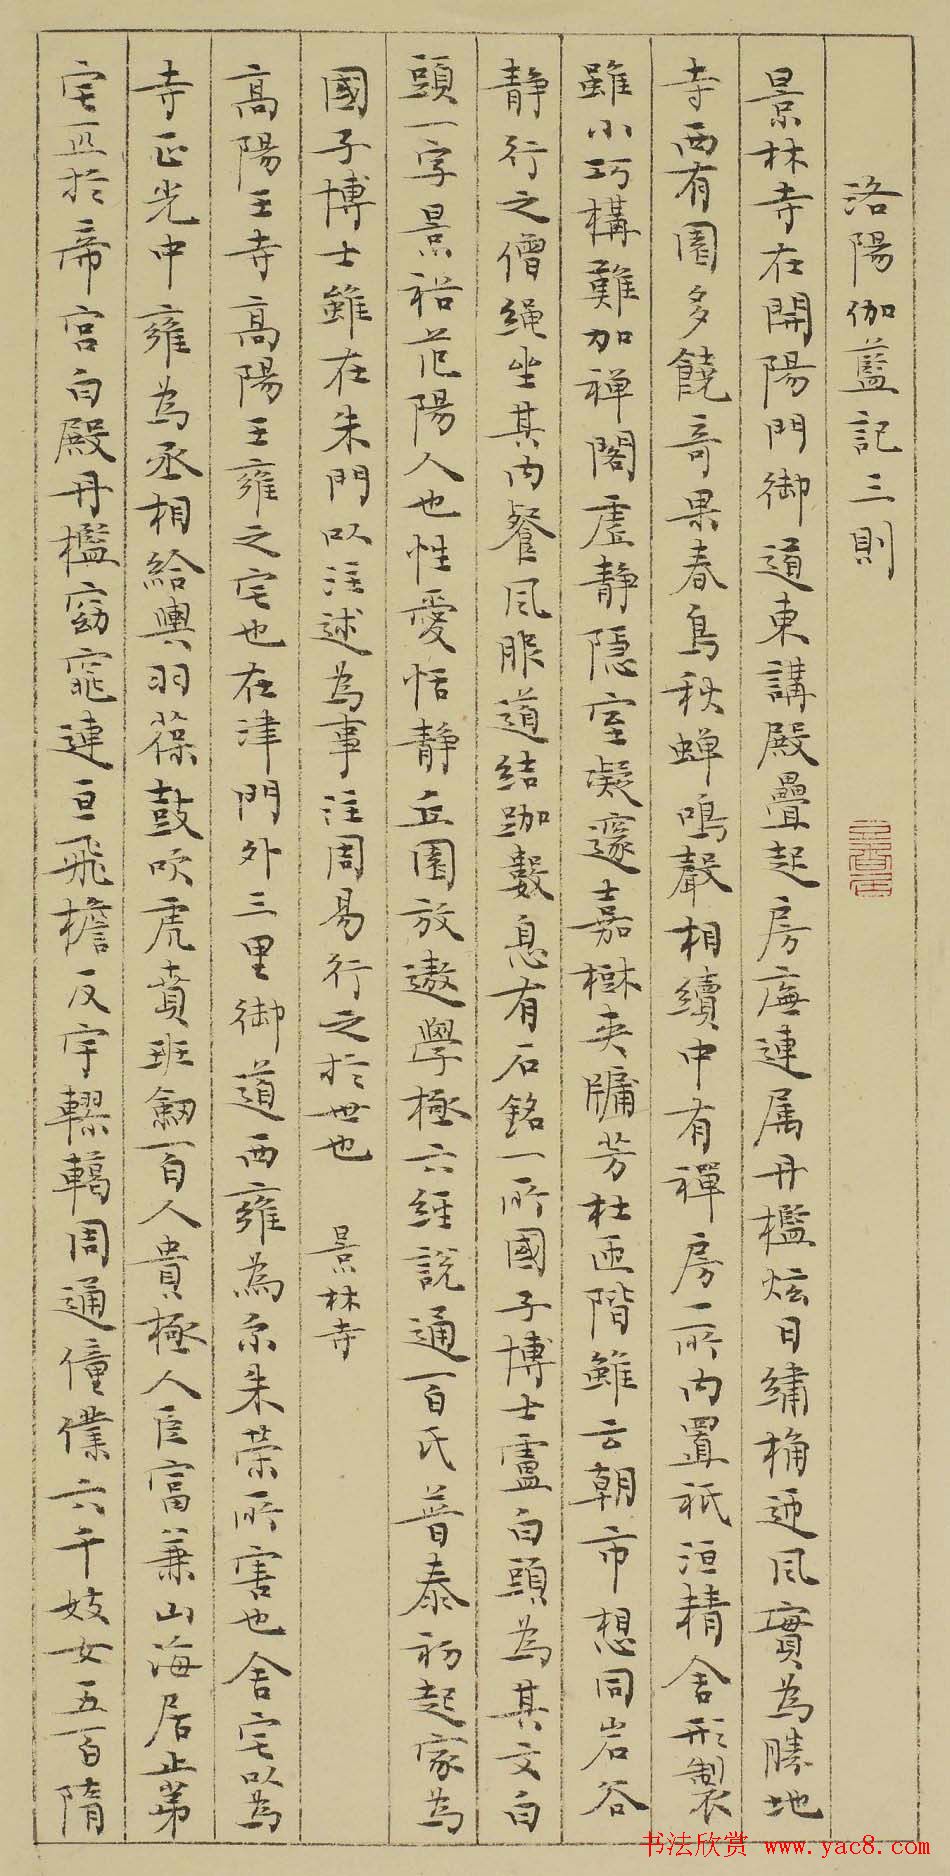 洛陽伽藍記三則
景林寺在開陽門御道東講殿疊起房廡連属丹檻炫日繡桷迎風實為勝地
寺西有園多饒奇果春鳥秋蟬鳴聲相續中有禪房一所內置祇洹精舍形製
雖小巧構難加禅閣虛静隱室凝邃嘉樹夾牖芳杜匝階雖云朝市想同岩谷
静行之僧繩坐其內餐風服道结跏數息有石銘一所國子博士盧白頭為其文白
頭一字景裕范陽人也性愛恬静丘園放遨學極六經說通百氏普泰初起家為
國子博士雖在朱門以注述為事注周易行之於世也 景林寺
高陽王寺高陽王雍之宅也在津門外三里御道西雍為尔朱荣所害也舍宅以為
寺正光中雍為丞相給輿羽葆鼓吹虎賁班劒百人貴極人臣富兼山海居止第
宅匹於帝宮白殿丹檻窈窕連亘飛檐反宇轇轕周通僮僕六千妓女五百隋
书法欣赏 www.yac8.com